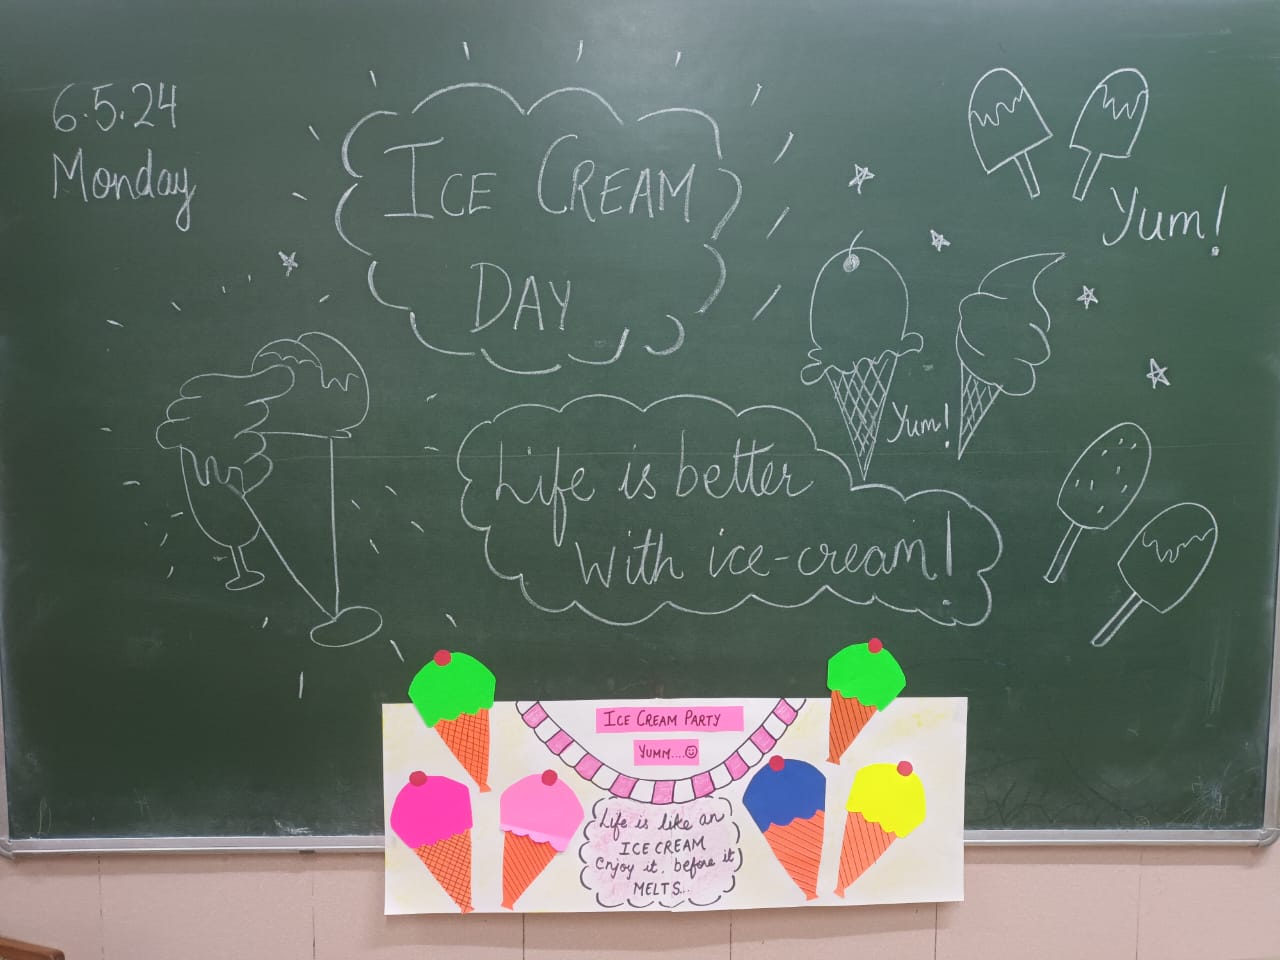 6.5.24
Monday
ICE CREAM
DAY
Yum!
Yum!
Life is better
with ice-cream!
ICE CREAM PARTY
YUMM....☺
Life is like an
ICE CREAM
Enjoy it, before it
MELTS...